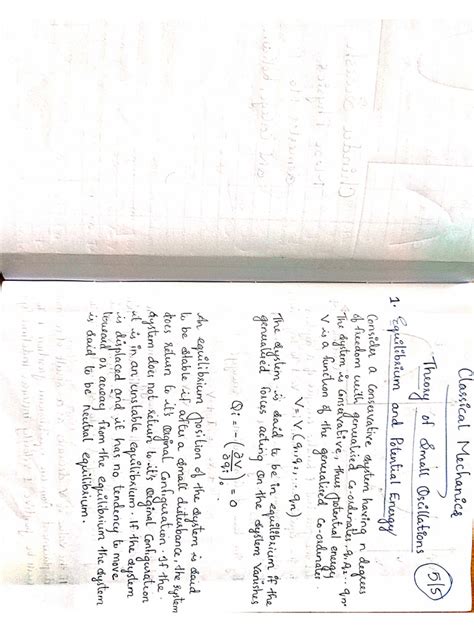 Classical Mechanics
Theory of Small Oscillations
5/5
1. Equilibrium and Potential Energy
Consider a conservative system having n degrees
of freedom with generalised co-ordinates q1, q2 ... qn
The system is conservative, thus potential energy
V is a function of the generalised co-ordinates.
V = V (q1, q2, ... qn)
The system is said to be in equilibrium if the
generalised forces acting on the system vanishes
Qi = - (∂V/∂qi)₀ = 0
An equilibrium position of the system is said
to be stable if after a small disturbance, the system
does return to its original configuration. If the
system does not return to its original configuration
it is in an unstable equilibrium. If the system
is displaced and it has no tendency to move
toward or away from the equilibrium the system
is said to be neutral equilibrium.